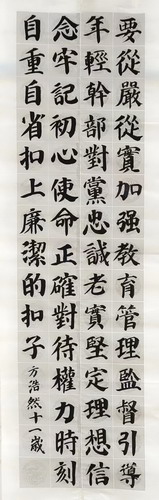 要從嚴從實加强教育管理監督引導
年輕幹部對黨忠誠老實堅定理想信
念牢記初心使命正確對待權力時刻
自重自省扣上廉潔的扣子
方浩然十一歲